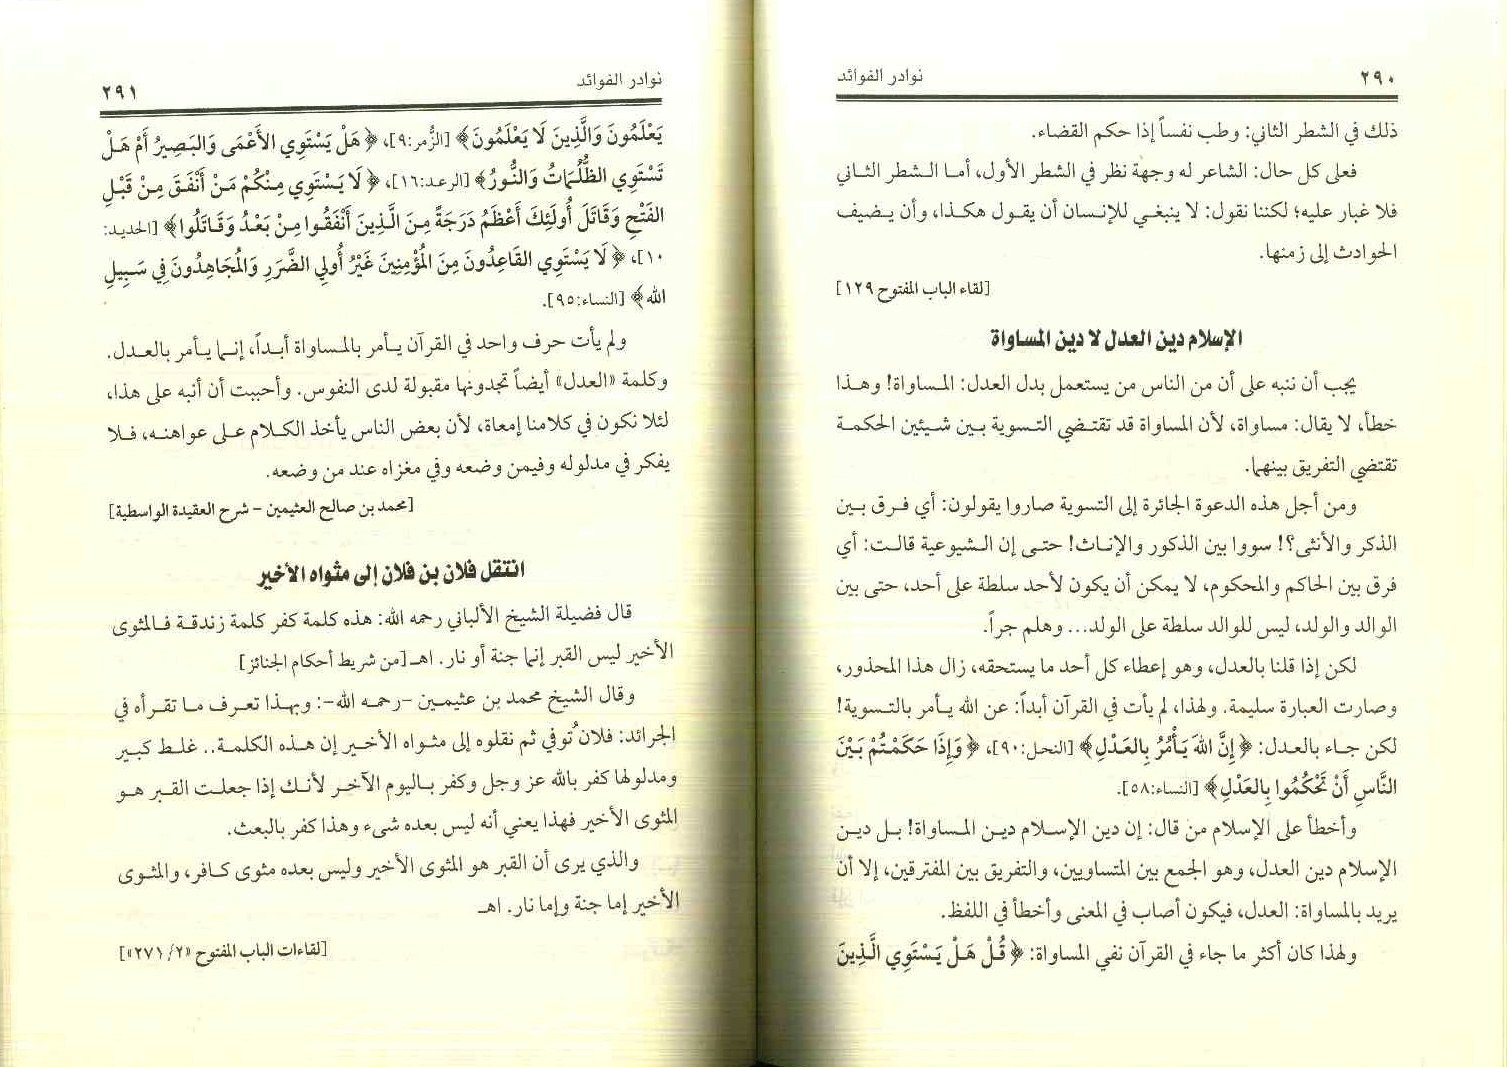 ٢٩٠ نوادر الفوائد
ذلك في الشطر الثاني: وطب نفساً إذا حكم القضاء.
فعلى كل حال: الشاعر له وجهة نظر في الشطر الأول، أما الشطر الثاني
فلا غبار عليه؛ لكننا نقول: لا ينبغي للإنسان أن يقول هكذا، وأن يضيف
الحوادث إلى زمنها.
[لقاء الباب المفتوح ١٢٩]
الإسلام دين العدل لا دين المساواة
يجب أن ننبه على أن من الناس من يستعمل بدل العدل: المساواة! وهذا
خطأ، لا يقال: مساواة، لأن المساواة قد تقتضي التسوية بين شيئين الحكمة
تقتضي التفريق بينهما.
ومن أجل هذه الدعوة الجائرة إلى التسوية صاروا يقولون: أي فرق بين
الذكر والأنثى؟! سووا بين الذكور والإناث! حتى إن الشيوعية قالت: أي
فرق بين الحاكم والمحكوم، لا يمكن أن يكون لأحد سلطة على أحد، حتى بين
الوالد والولد، ليس للوالد سلطة على الولد... وهلم جراً.
لكن إذا قلنا بالعدل، وهو إعطاء كل أحد ما يستحقه، زال هذا المحذور،
وصارت العبارة سليمة. ولهذا، لم يأت في القرآن أبداً: عن الله يأمر بالتسوية!
لكن جاء بالعدل: ﴿إِنَّ اللهَ يَأْمُرُ بِالعَدْلِ﴾ [النحل:٩٠]، ﴿وَإِذَا حَكَمْتُمْ بَيْنَ
النَّاسِ أَنْ تَحْكُمُوا بِالعَدْلِ﴾ [النساء:٥٨].
وأخطأ على الإسلام من قال: إن دين الإسلام دين المساواة! بل دين
الإسلام دين العدل، وهو الجمع بين المتساويين، والتفريق بين المفترقين، إلا أن
يريد بالمساواة: العدل، فيكون أصاب في المعنى وأخطأ في اللفظ.
ولهذا كان أكثر ما جاء في القرآن نفي المساواة: ﴿قُلْ هَلْ يَسْتَوِي الَّذِينَ
نوادر الفوائد ٢٩١
يَعْلَمُونَ وَالَّذِينَ لَا يَعْلَمُونَ﴾ [الزُّمر:٩]، ﴿هَلْ يَسْتَوِي الأَعْمَى وَالبَصِيرُ أَمْ هَلْ
تَسْتَوِي الظُّلُمَاتُ وَالنُّورُ﴾ [الرعد:١٦]، ﴿لَا يَسْتَوِي مِنْكُمْ مَنْ أَنْفَقَ مِنْ قَبْلِ
الفَتْحِ وَقَاتَلَ أُولَئِكَ أَعْظَمُ دَرَجَةً مِنَ الَّذِينَ أَنْفَقُوا مِنْ بَعْدُ وَقَاتَلُوا﴾ [الحديد:
١٠]، ﴿لَا يَسْتَوِي القَاعِدُونَ مِنَ المُؤْمِنِينَ غَيْرُ أُولِي الضَّرَرِ وَالمُجَاهِدُونَ فِي سَبِيلِ
الله﴾ [النساء:٩٥].
ولم يأت حرف واحد في القرآن يأمر بالمساواة أبداً، إنما يأمر بالعدل.
وكلمة «العدل» أيضاً تجدونها مقبولة لدى النفوس. وأحببت أن أنبه على هذا،
لئلا نكون في كلامنا إمعاة، لأن بعض الناس يأخذ الكلام على عواهنه، فلا
يفكر في مدلوله وفيمن وضعه وفي مغزاه عند من وضعه.
[محمد بن صالح العثيمين - شرح العقيدة الواسطية]
انتقل فلان بن فلان إلى مثواه الأخير
قال فضيلة الشيخ الألباني رحمه الله: هذه كلمة كفر كلمة زندقة فالمثوى
الأخير ليس القبر إنما جنة أو نار. اهـ [من شريط أحكام الجنائز]
وقال الشيخ محمد بن عثيمين -رحمه الله-: وبهذا تعرف ما تقرأه في
الجرائد: فلان تُوفي ثم نقلوه إلى مثواه الأخير إن هذه الكلمة.. غلط كبير
ومدلولها كفر بالله عز وجل وكفر باليوم الآخر لأنك إذا جعلت القبر هو
المثوى الأخير فهذا يعني أنه ليس بعده شيء وهذا كفر بالبعث.
والذي يرى أن القبر هو المثوى الأخير وليس بعده مثوى كافر، والمثوى
الأخير إما جنة وإما نار. اهـ
[لقاءات الباب المفتوح «٢/ ٢٧١»]